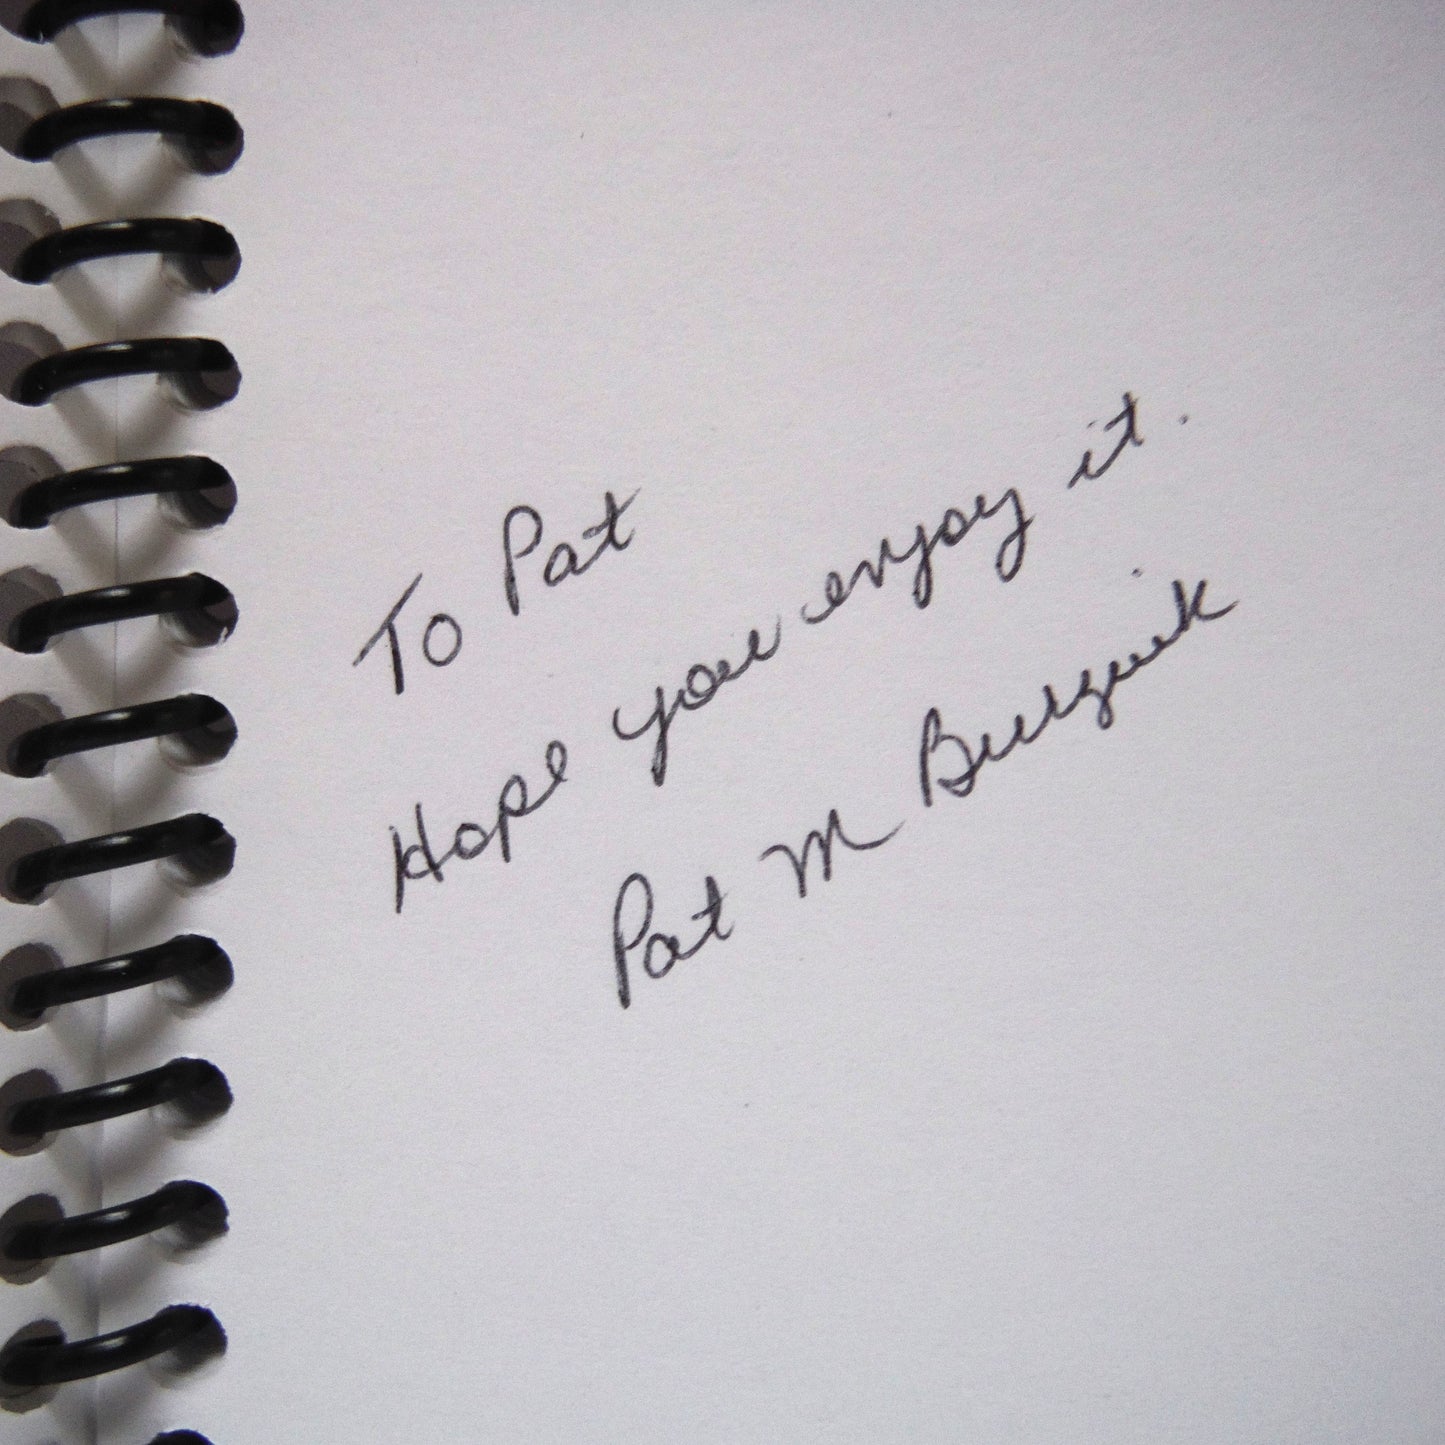 To Pat
Hope you enjoy it.
Pat M